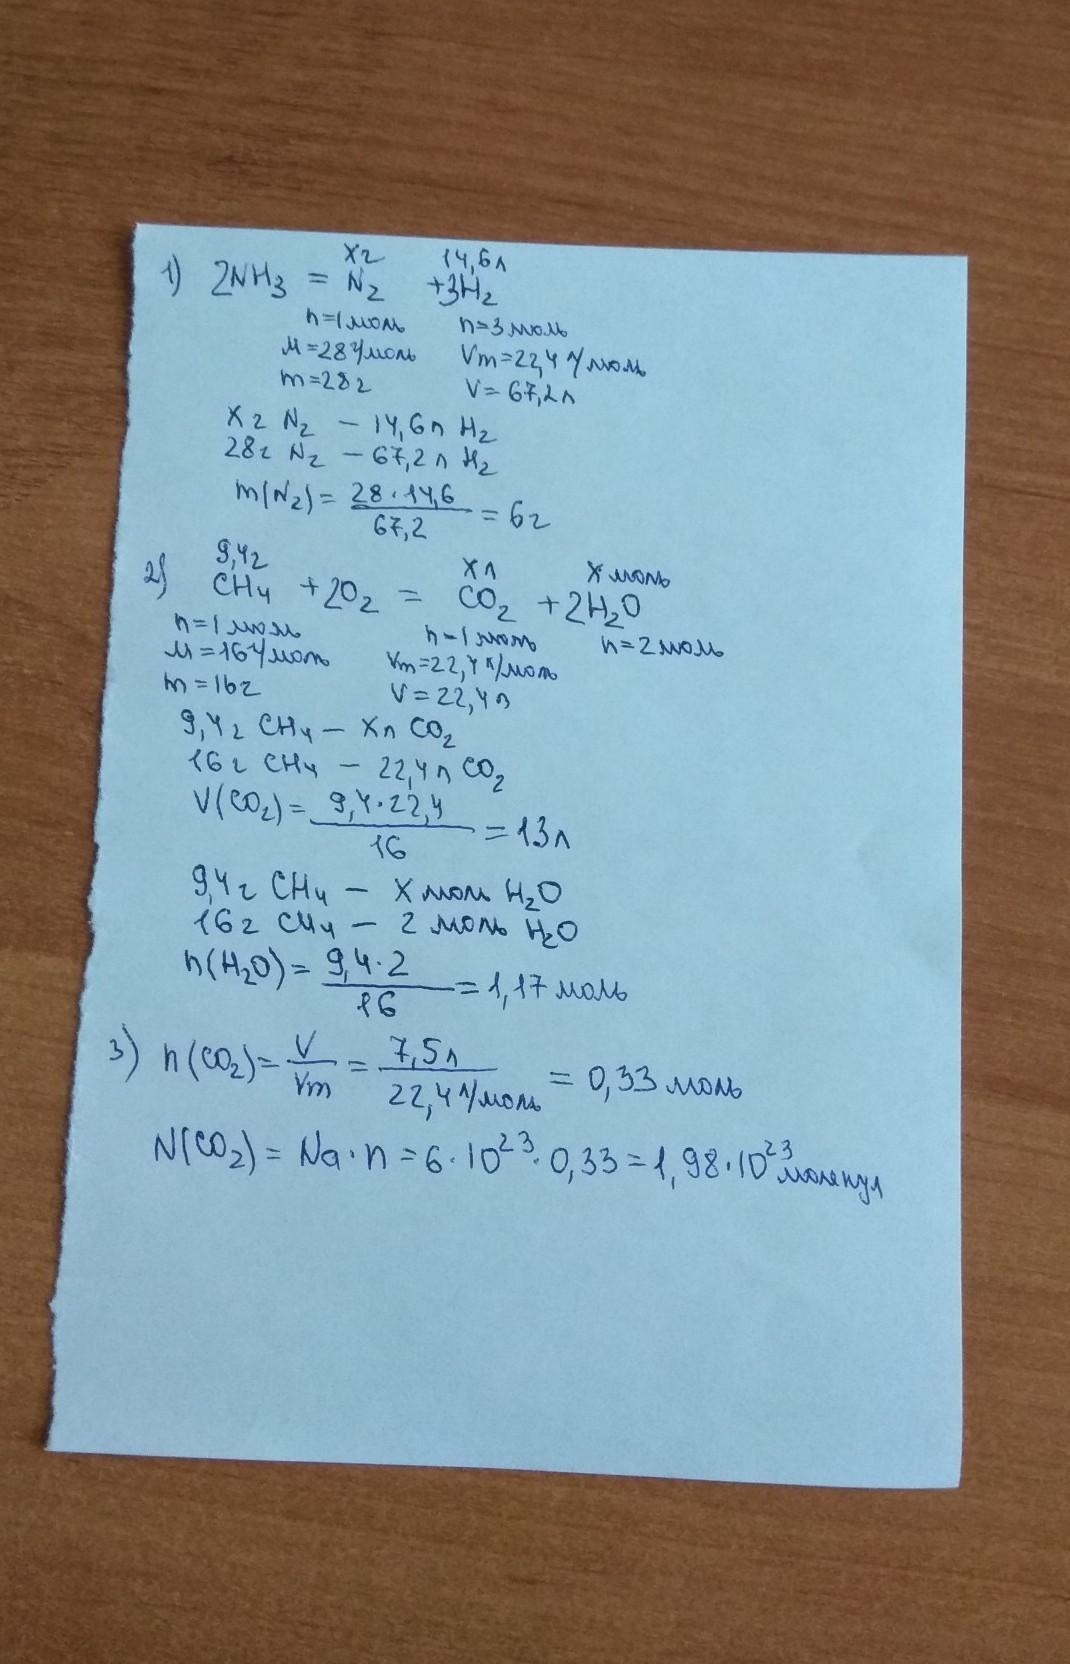 x г 14,6 л
1) 2NH₃ = N₂ +3H₂
n=1 моль n=3 моль
M=28 г/моль Vm=22,4 л/моль
m=28 г V=67,2 л
x г N₂ – 14,6 л H₂
28 г N₂ – 67,2 л H₂
m(N₂) = 28·14,6 / 67,2 = 6 г
9,4 г x л x моль
2) CH₄ + 2O₂ = CO₂ + 2H₂O
n=1 моль n=1 моль n=2 моль
M=16 г/моль Vm=22,4 л/моль
m=16 г V=22,4 л
9,4 г CH₄ – x л CO₂
16 г CH₄ – 22,4 л CO₂
V(CO₂) = 9,4·22,4 / 16 = 13 л
9,4 г CH₄ – x моль H₂O
16 г CH₄ – 2 моль H₂O
n(H₂O) = 9,4·2 / 16 = 1,17 моль
3) n(CO₂) = V / Vm = 7,5 л / 22,4 л/моль = 0,33 моль
N(CO₂) = Na·n = 6·10²³·0,33 = 1,98·10²³ молекул